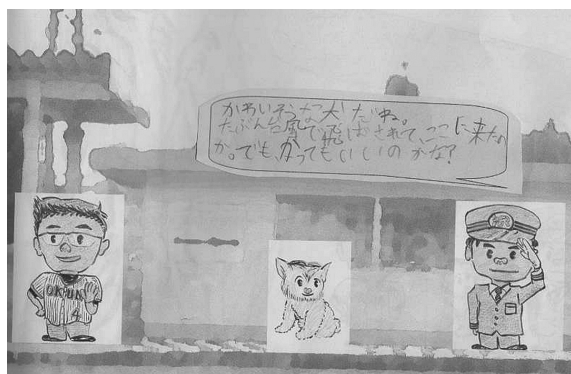 かわいそうな犬だね。
たぶん台風で飛ばされて、ここに来たの
か。でも、かってもいいのかな?
OKUN
4